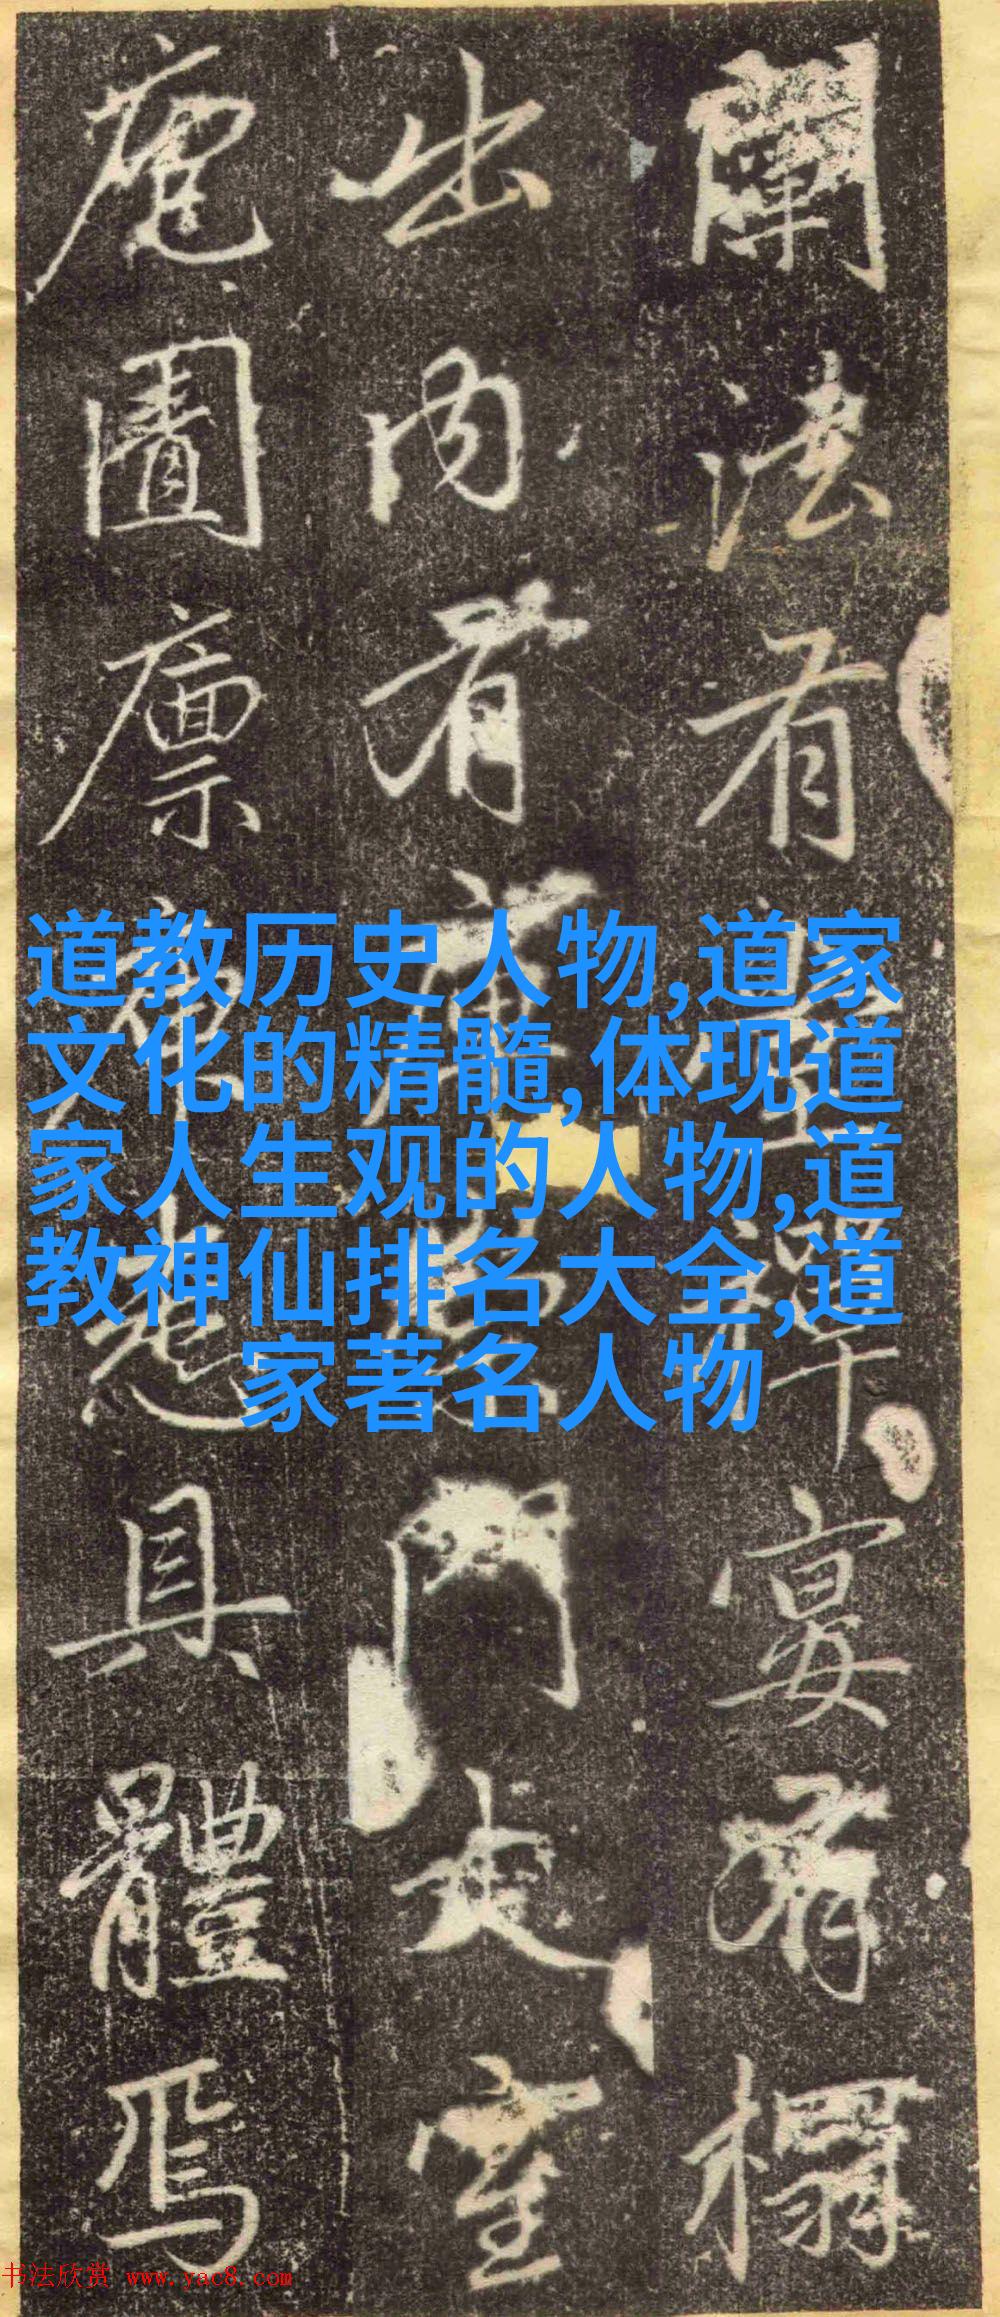 闡法有禪宴有榻
出內有門室
廩具體焉
道教历史人物,道家
文化的精髓,体现道
家人生观的人物,道
教神仙排名大全,道
家著名人物
书法欣赏 www.yac8.com